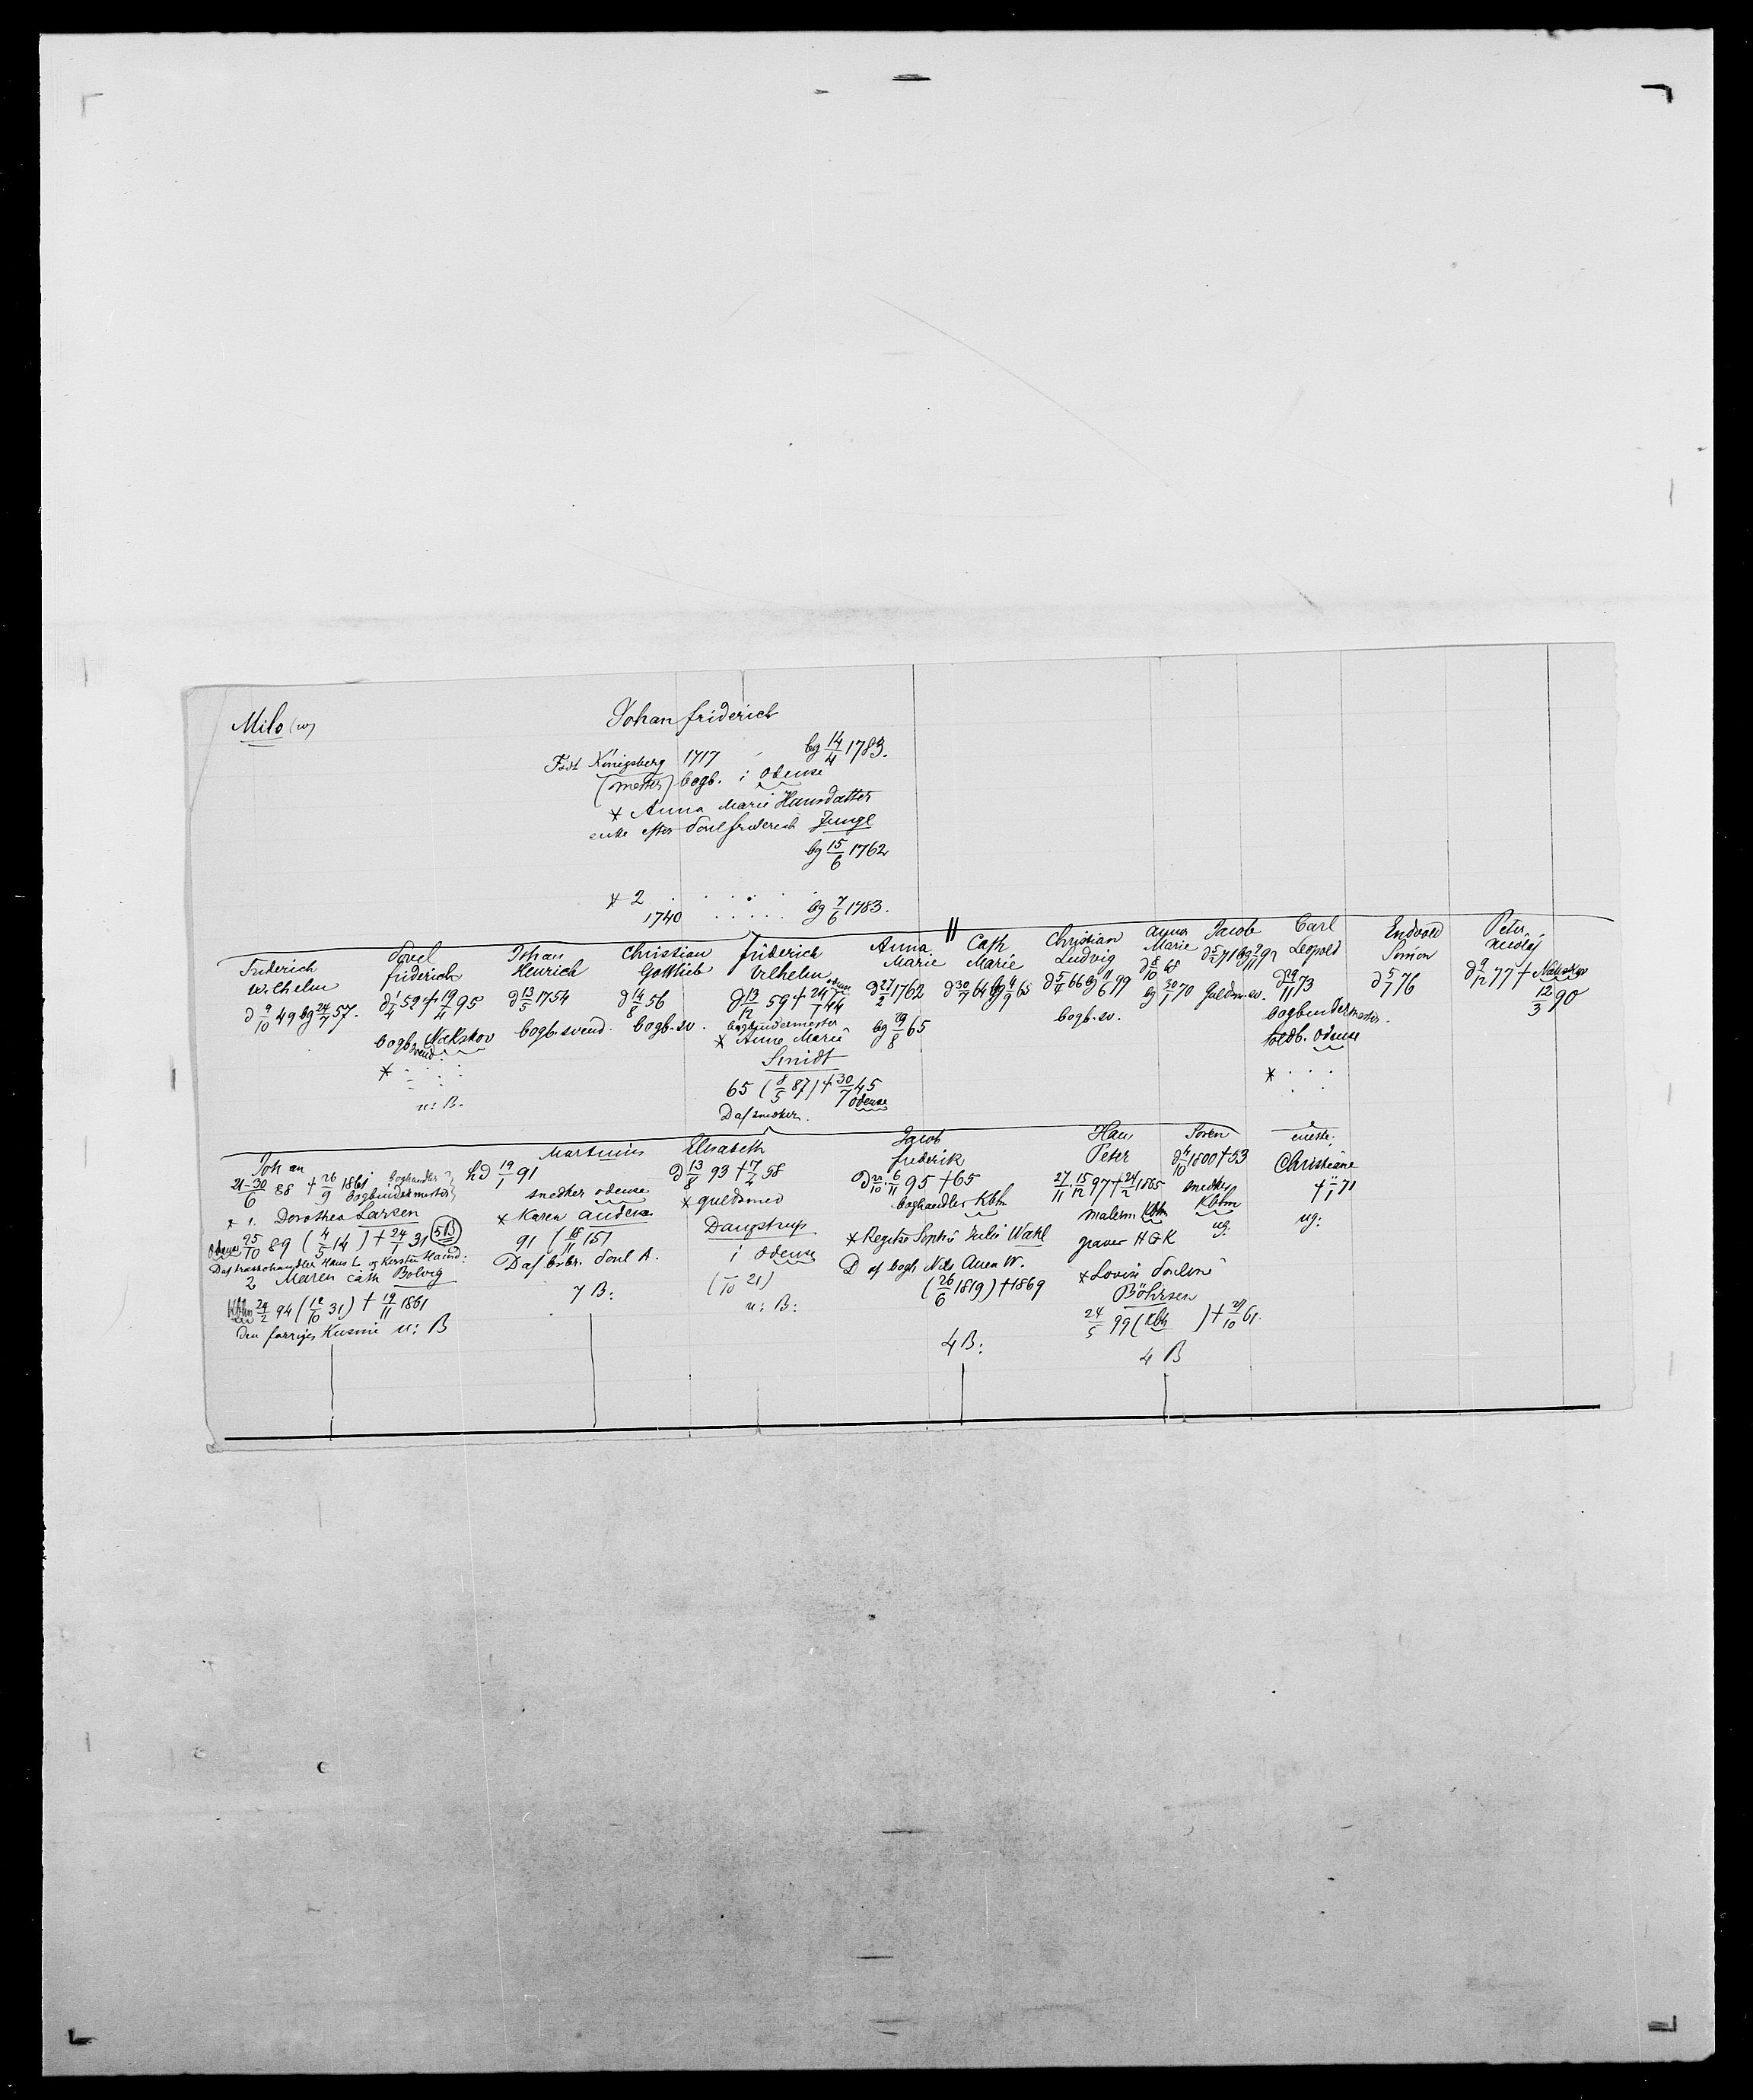 Milo (w)
Johan friderich
Født Königsberg 1717 bg 14/4 1783.
(mester) bogb. i Odense
* Anna Marie Hansdatter
enke efter Poul friderich Junge
bg 15/6 1762
* 2 . . . . .
1740 . . . . . bg 7/6 1783.
Friderich Wilhelm
d 9/10 49 bg 24/7 57.
Povel friderich
d 1/4 52 † 19/4 95
bogb. svend Nakskov
* . . .
u: B.
Johan Henrich
d 13/5 1754
bogb svend.
Christian Gottlieb
d 14/8 56
bogb. sv.
friderich Vilhelm
d 13/12 59 † 24/7 44 Odense
bogbindermester
* Anne Marie
Smidt
65 (8/5 87) † 30/7 45
Odense
D af snedker.
Anna Marie
d 27/2 1762
bg 29/8 65
Cath Marie
d 30/7 64 bg 4/9 65
Christian Ludvig
d 5/4 66 bg 11/6 99
bogb. sv.
Anna Marie
d 8/10 68
bg 30/1 70
Jacob
d 5/2 71 bg 2/11 97
Guldsm sv.
Carl Leopold
d 29/11 73
bogbindermester.
toldb. Odense
* . . .
. .
Endvold Simon
d 5/1 76
Peter Nicolaj
d 9/12 77 † Nakskov
12/3 90
Johan
21-20/6 88 † 26/9 1861 boghandler
bogbindermester
* 1. Dorothea Larsen
Odense 25/10 89 (4/5 14) † 24/1 31 (5B)
Hans L og Kirstin
2 Maren Cath Bolvig
Kbhn 29/2 94 (12/10 31) † 19/11 1861
den forriges Kusine u: B
Martinus
hd 19/1 91
snedker Odense
* Karen Anders
91 (15/11 15)
D af Poul A.
7 B:
Elisabeth
d 13/8 93 † 7/4 58
* guldsmed
Daugstrup
i Odense
(-/10 21)
u: B:
Jacob frederik
d 20/10. 6/11 95 † 65
boghandler Kbh
* Regitze Sophie Julie Wahl
D af bogh Nils Aven W.
(26/6 1819) † 1869
4 B:
Hans Peter
27/11. 15/12 97 † 24/2 1865
malerm Kbh
graver H G K
* Lovise Pouline
Böhrsen
24/5 99 (Kbh ) † 27/10 61.
4 B
Søren
d 4/10 1800 † 53
snedker
Kbhn
ug.
eneste:
Christiane
† -/1 71
ug: